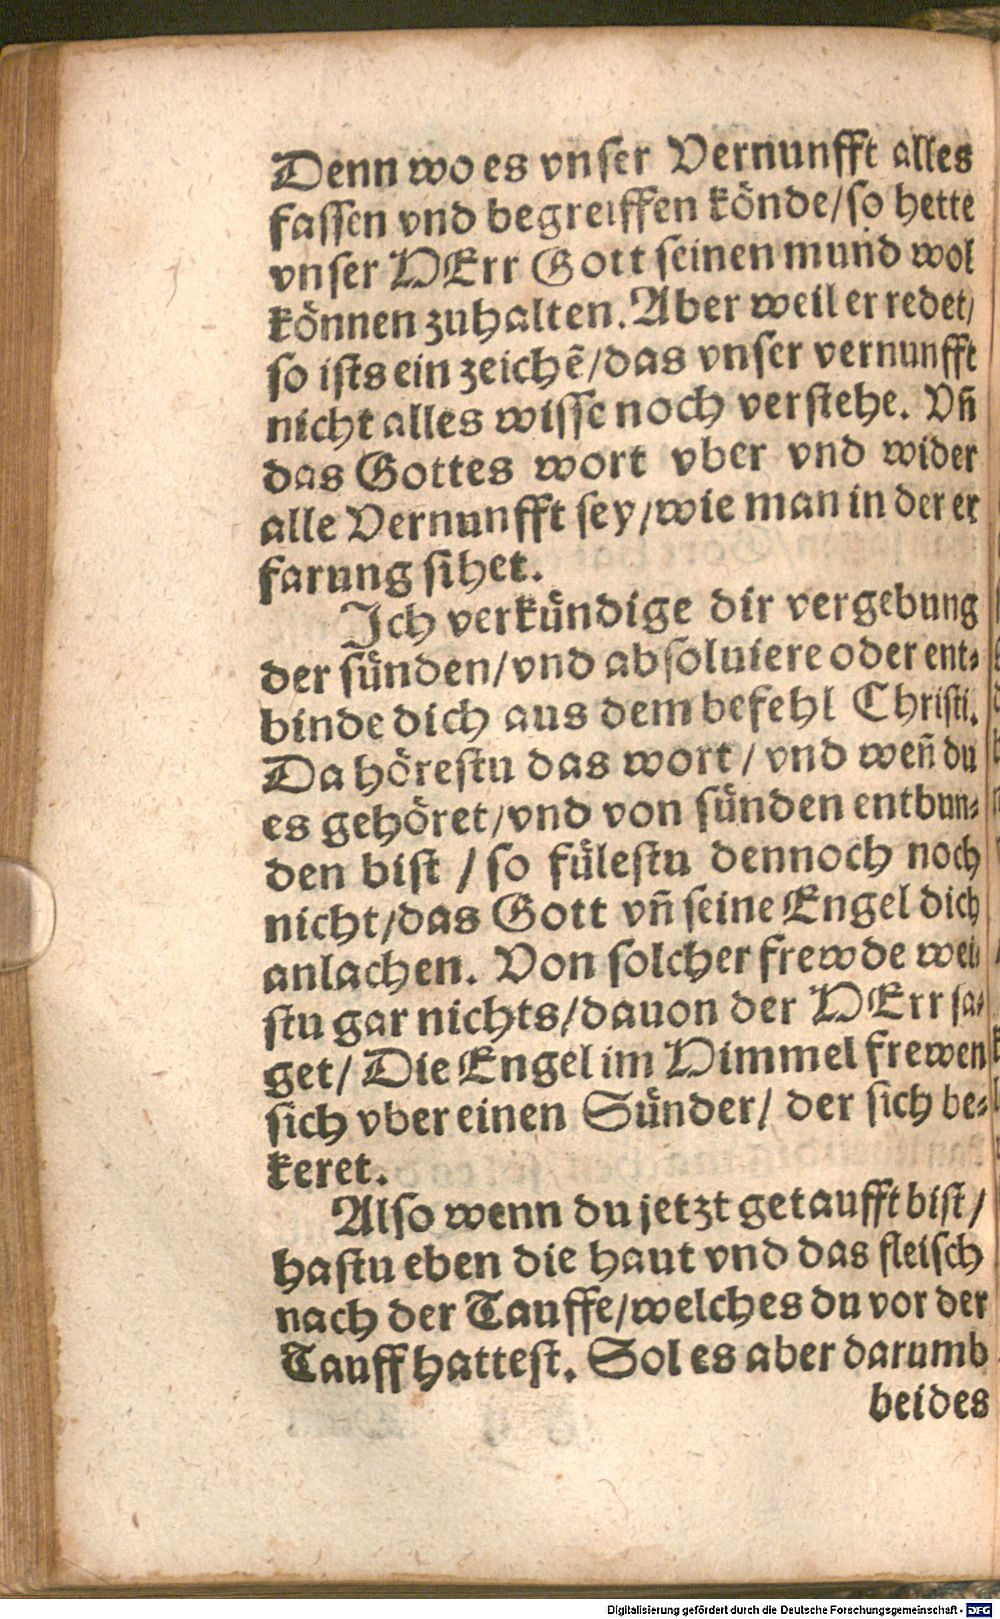 Denn wo es vnser Vernunfft alles
fassen vnd begreiffen könde/so hette
vnser HErr Gott seinen mund wol
können zuhalten. Aber weil er redet/
so ists ein zeichē/das vnser vernunfft
nicht alles wisse noch verstehe. Vñ
das Gottes wort vber vnd wider
alle Vernunfft sey/wie man in der er
farung sihet.
Ich verkündige dir vergebung
der sünden/vnd absoluiere oder ent⸗
binde dich aus dem befehl Christi.
Da hörestu das wort/vnd weñ du
es gehöret/vnd von sünden entbun⸗
den bist/so fülestu dennoch noch
nicht/das Gott vñ seine Engel dich
anlachen. Von solcher frewde wei⸗
stu gar nichts/dauon der HErr sa⸗
get/Die Engel im Himmel frewen
sich vber einen Sünder/der sich be⸗
keret.
Also wenn du jetzt getaufft bist/
hastu eben die haut vnd das fleisch
nach der Tauffe/welches du vor der
Tauff hattest. Sol es aber darumb
beides
Digitalisierung gefördert durch die Deutsche Forschungsgemeinschaft - DFG